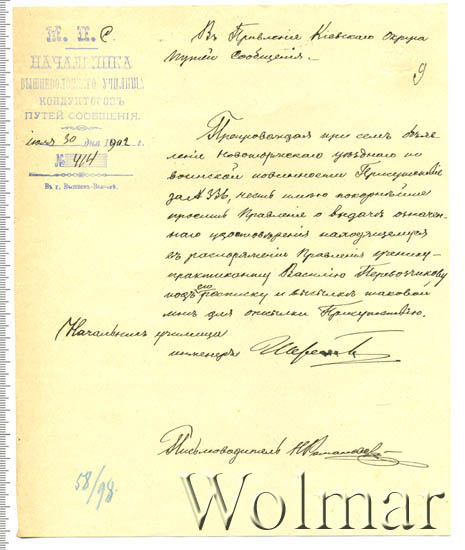 М. П. С.
НАЧАЛЬНИКА
ВЫШНЕВОЛОЦКАГО УЧИЛИЩА
КОНДУКТОРОВЪ
ПУТЕЙ СООБЩЕНІЯ.
іюля 30 дня 1902 г.
№ 414
Въ г. Вышнем-Волочкѣ.
Въ Правленіе Кіевскаго Округа
Путей Сообщенія.
9
Препровождая при семъ
Новоторжскаго уѣзднаго по
воинской повинности Присутствія
за № 336, честь имѣю покорнѣйше
просить Правленіе о выдачѣ означен-
наго удостовѣренія находящемуся
въ распоряженіи Правленія ученику-
практиканту Василію Перевозчикову
подъ его росписку и высылкѣ таковой
мнѣ для отсылки Присутствію.
Начальникъ училища
инженеръ
Письмоводитель
58/98.
Wolmar